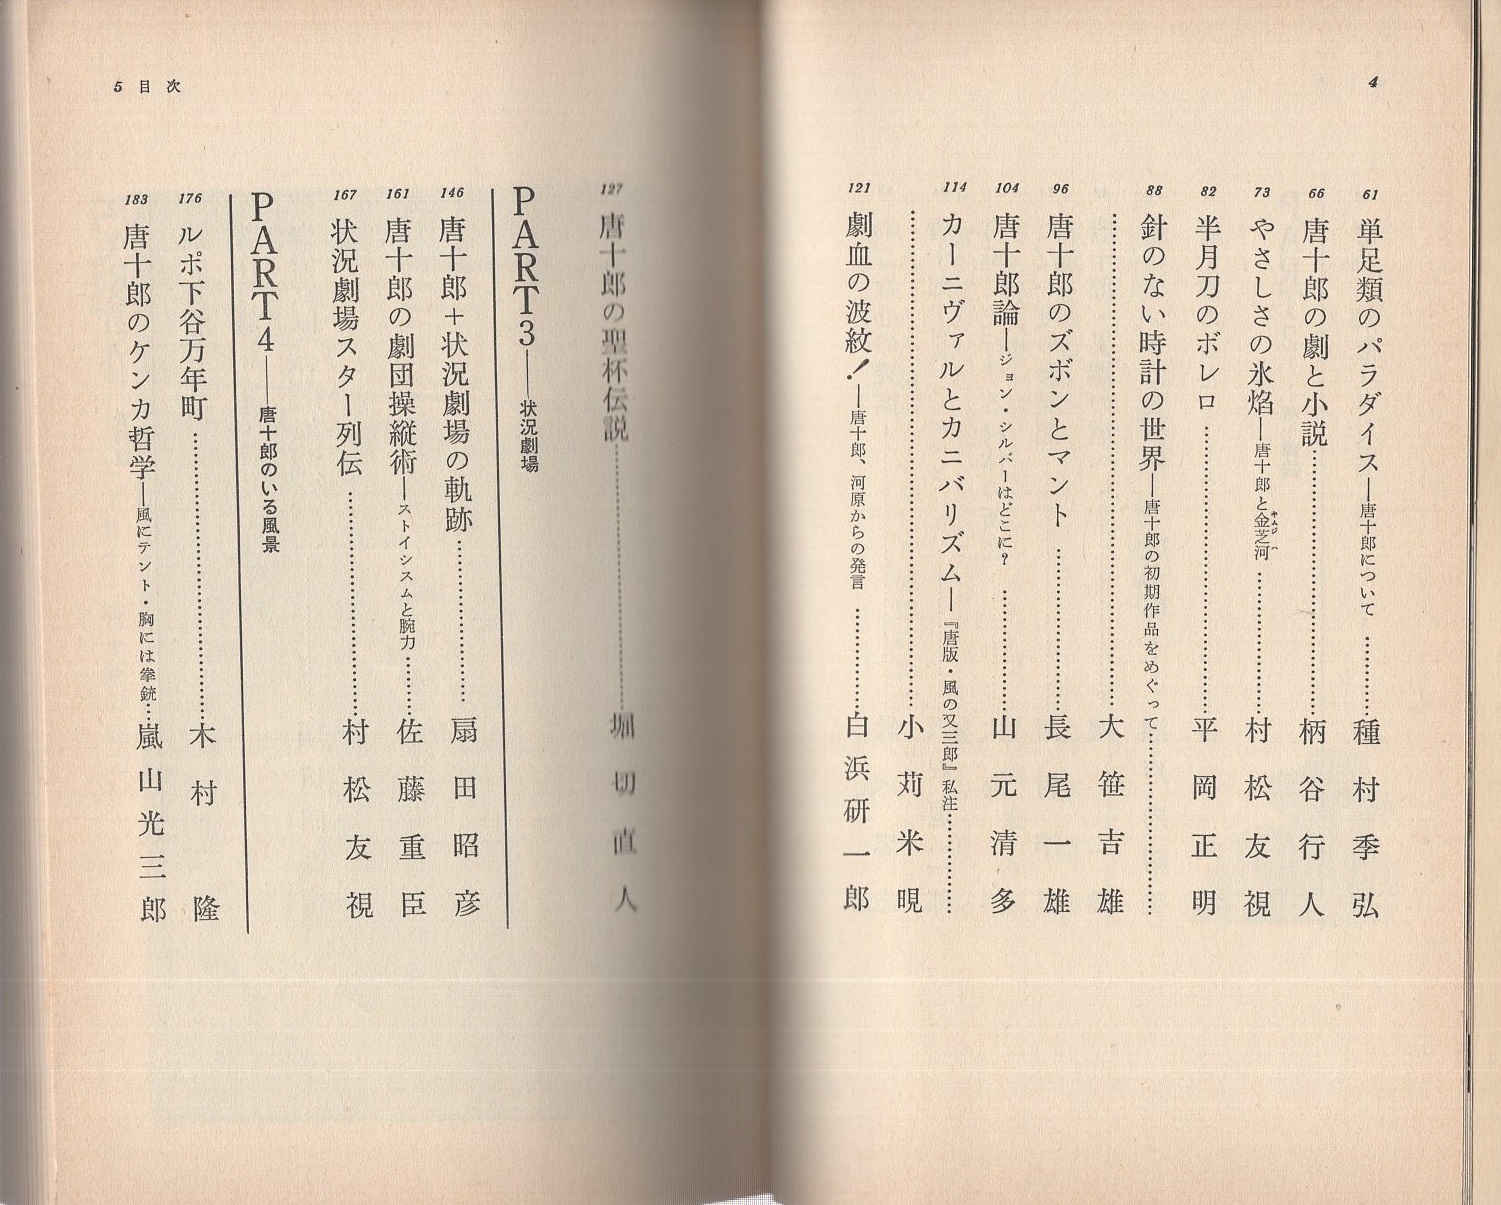 4
61 単足類のパラダイス―唐十郎について…………種村季弘
66 唐十郎の劇と小説…………柄谷行人
73 やさしさの氷焔―唐十郎と金芝河…………村松友視
キムジハ
82 半月刀のボレロ…………平岡正明
88 針のない時計の世界―唐十郎の初期作品をめぐって…………
…………大笹吉雄
96 唐十郎のズボンとマント…………長尾一雄
104 唐十郎論―ジョン・シルバーはどこに?…………山元清多
114 カーニヴァルとカニバリズム―『唐版・風の又三郎』私注…………
…………小苅米晛
121 劇血の波紋!―唐十郎、河原からの発言…………白浜研一郎
5 目次
127 唐十郎の聖杯伝説…………堀切直人
PART3――状況劇場
146 唐十郎+状況劇場の軌跡…………扇田昭彦
161 唐十郎の劇団操縦術―ストイシスムと腕力…………佐藤重臣
167 状況劇場スター列伝…………村松友視
PART4――唐十郎のいる風景
176 ルポ下谷万年町…………木村隆
183 唐十郎のケンカ哲学―風にテント・胸には拳銃…嵐山光三郎